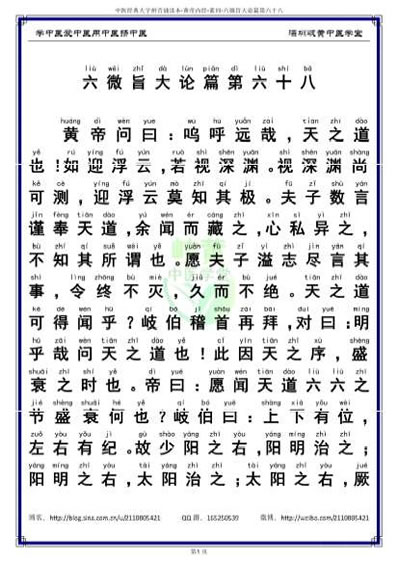 中医经典大字拼音诵读本·黄帝内经·素问·六微旨大论篇第六十六
学中医爱中医用中医扬中医
liù wēi zhǐ dà lùn piān dì liù shí bā
六微旨大论篇第六十八
huáng dì wèn yuē wū hū yuǎn zāi tiān zhī dào
黄帝问曰：呜呼远哉，天之道
yě rú yíng fú yún ruò shì shēn yuān shì shēn yuān shàng
也！如迎浮云，若视深渊。视深渊尚
kě cè yíng fú yún mò zhī qí jí fū zǐ shù yán
可测，迎浮云莫知其极。夫子数言
jǐn fèng tiān dào yú wén ér cáng zhī xīn sī yì zhī
谨奉天道，余闻而藏之，心私异之，
bù zhī qí suǒ wèi yě yuàn fū zǐ yì zhì jìn yán qí
不知其所谓也。愿夫子溢志尽言其
shì lìng zhōng bù miè jiǔ ér bù jué tiān zhī dào
事，令终不灭，久而不绝。天之道
kě dé wén hū qí bó jī shǒu zài bài duì yuē míng
可得闻乎？岐伯稽首再拜，对曰：明
hū zāi wèn tiān zhī dào yě cǐ yīn tiān zhī xù shèng
乎哉问天之道也！此因天之序，盛
shuāi zhī shí yě dì yuē yuàn wén tiān dào liù liù zhī
衰之时也。帝曰：愿闻天道六六之
jié shèng shuāi hé yě qí bó yuē shàng xià yǒu wèi
节盛衰何也？岐伯曰：上下有位，
zuǒ yòu yǒu jì gù shào yáng zhī yòu yáng míng zhì zhī
左右有纪。故少阳之右，阳明治之；
yáng míng zhī yòu tài yáng zhì zhī tài yáng zhī yòu jué
阳明之右，太阳治之；太阳之右，厥
博客：http://blog.sina.com.cn/u/2110805421 QQ群：165250539 微博：http://weibo.com/2110805421